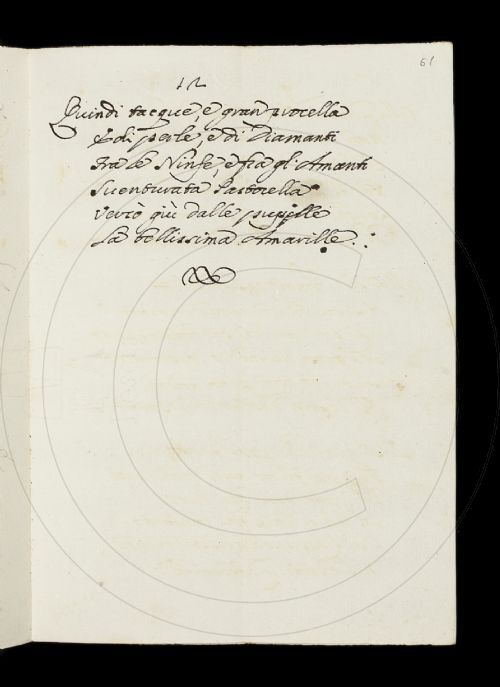 61
12
Quindi tacque, e gran procella
E di perle, e di Diamanti
Tra le Ninfe, e fra gl'Amanti
Suenturata Pastorella
Versò giù dalle pupille
La bellissima Amarille.